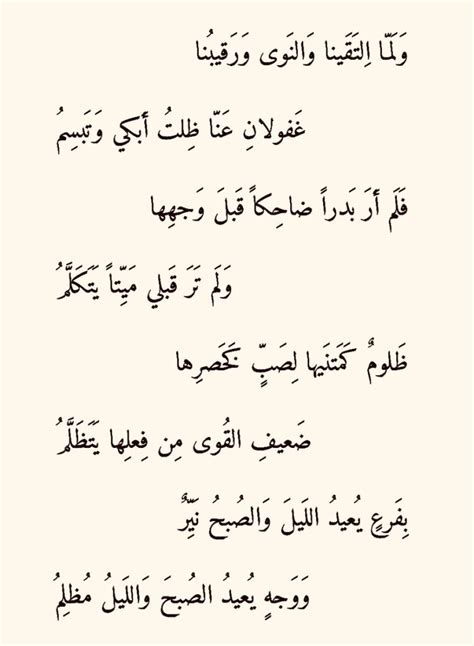 وَلَمّا اِلتَقَينا وَالنَوى وَرَقيبُنا
غَفولانِ عَنّا ظِلتُ أَبكي وَتَبسِمُ
فَلَم أَرَ بَدراً ضاحِكاً قَبلَ وَجهِها
وَلَم تَرَ قَبلي مَيِّتاً يَتَكَلَّمُ
ظَلومٌ كَمَتنَيها لِصَبٍّ كَخَصرِها
ضَعيفِ القُوى مِن فِعلِها يَتَظَلَّمُ
بِفَرعٍ يُعيدُ اللَيلَ وَالصُبحُ نَيِّرٌ
وَوَجهٍ يُعيدُ الصُبحَ وَاللَيلُ مُظلِمُ